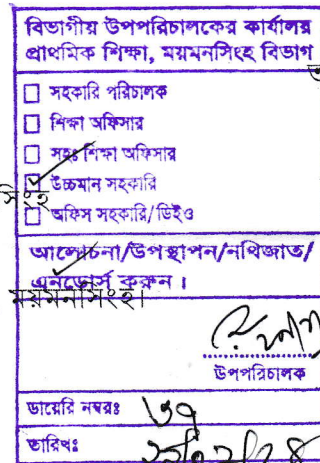 বিভাগীয় উপপরিচালকের কার্যালয়
প্রাথমিক শিক্ষা, ময়মনসিংহ বিভাগ
সহকারি পরিচালক
শিক্ষা অফিসার
সহঃ শিক্ষা অফিসার
উচ্চমান সহকারি
সিংহ
অফিস সহকারি/ডিইও
আলোচনা/উপস্থাপন/নথিজাত/
এনডোর্স করুন।
ময়মনসিংহ।
উপপরিচালক
ডায়েরি নম্বরঃ ৩৭
তারিখঃ